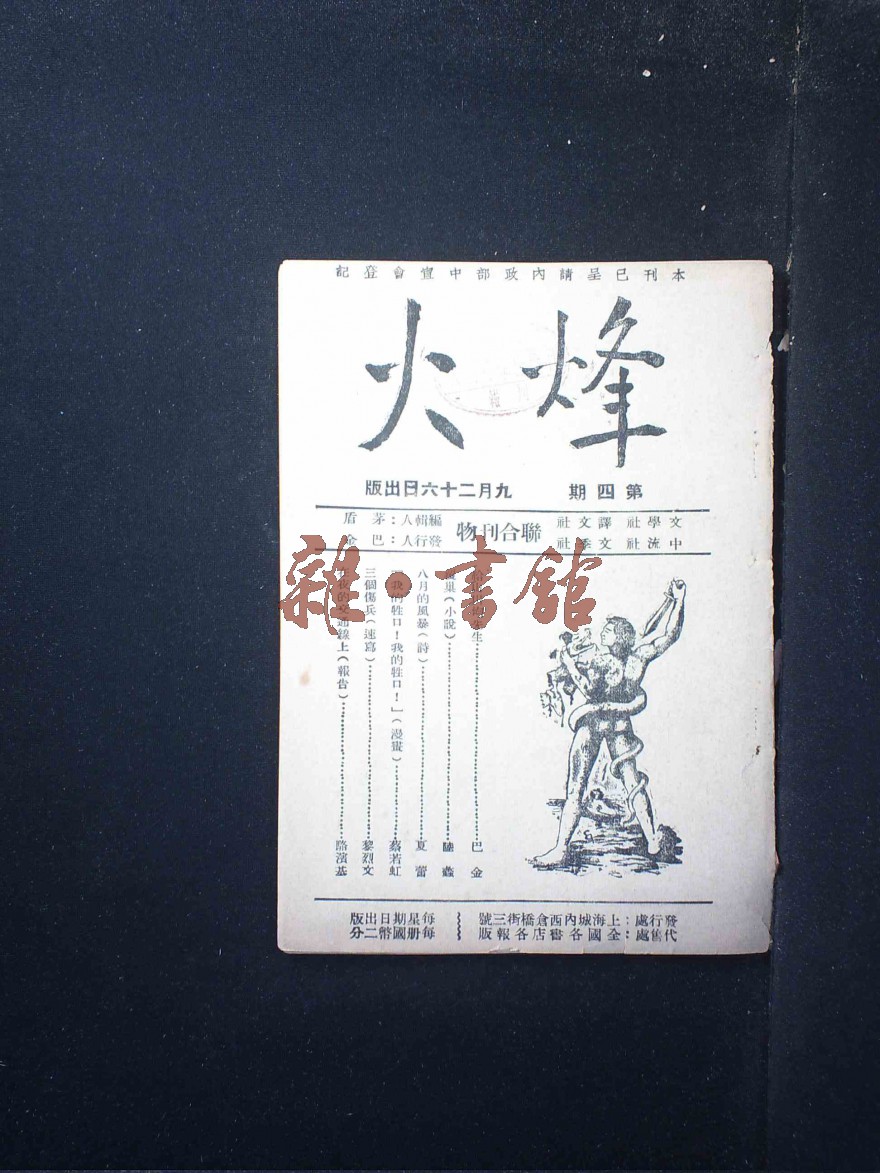 本刊已呈請內政部中宣會登記
烽火
第四期 九月二十六日出版
文學社 譯文社
中流社 文季社
聯合刊物
編輯人：茅盾
發行人：巴金
先生 巴金
巢(小說) 陸蠡
八月的風暴(詩) 夏蕾
「我的牲口！我的牲口！」(漫畫) 蔡若虹
三個傷兵(速寫) 黎烈文
在我的交通線上(報告) 駱濱基
發行處：上海城內西倉橋街三號
代售處：全國各書店各報販
每星期日出版
每册國幣二分
雜·書館